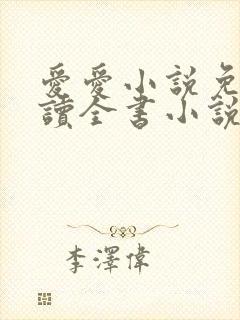 愛愛小説免
讀全書小說
李澤偉